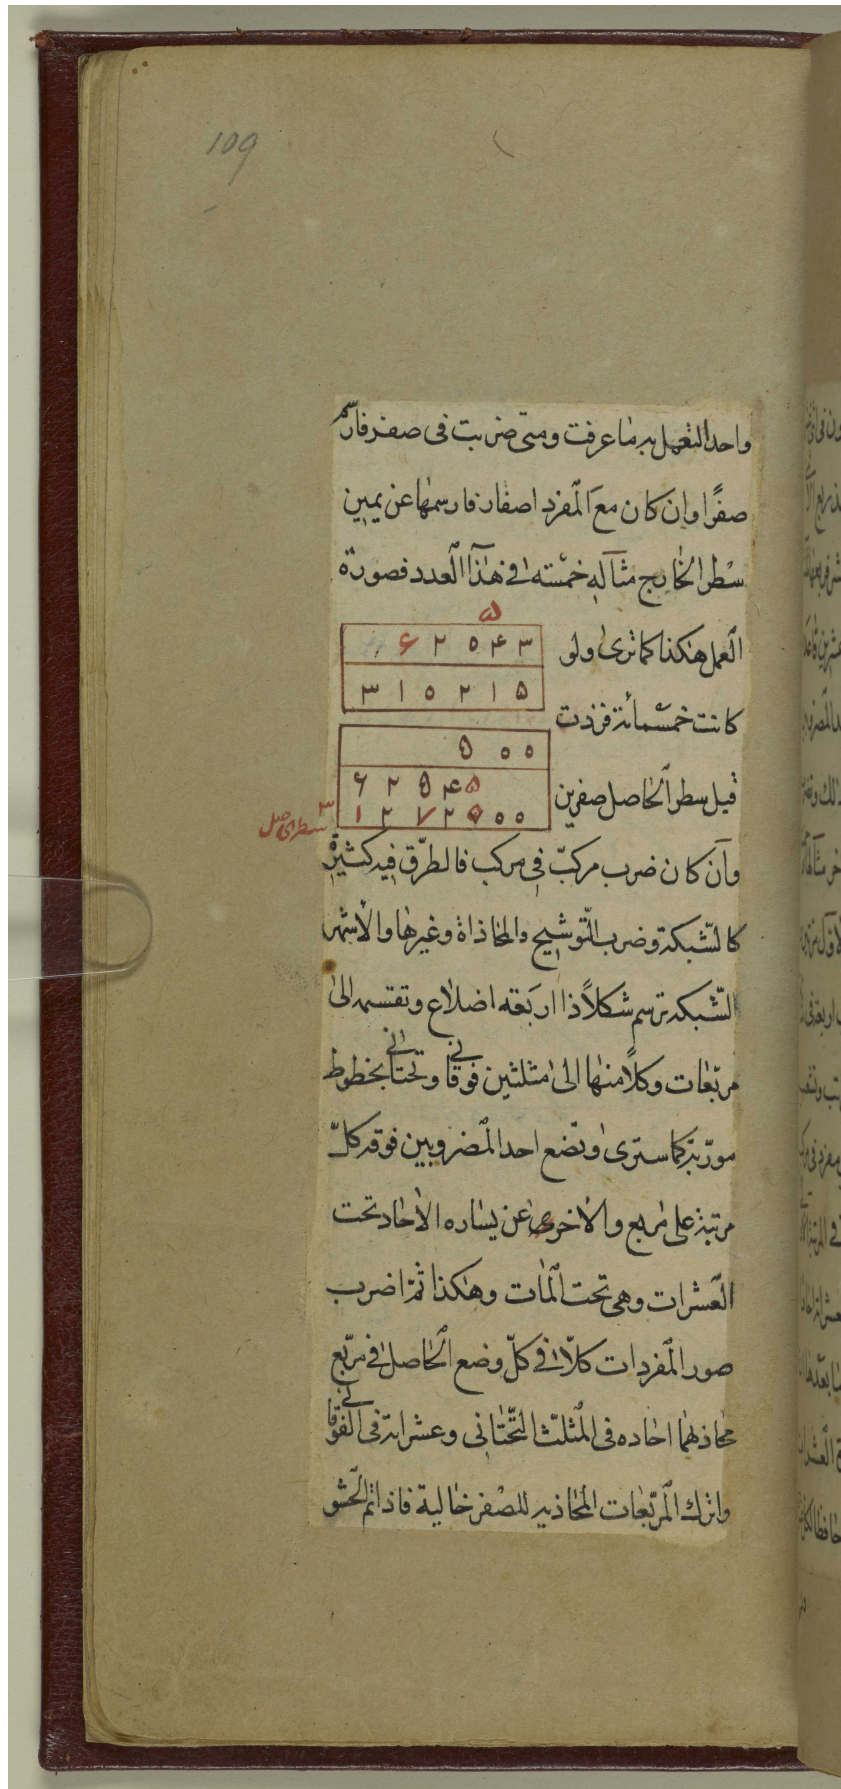 109
واحدا لتعمل به ما عرفت ومتى ضربت فى صفر فارسم
صفرًا وان كان مع المفرد اصفار فارسمها عن يمين
سطر الخارج مثاله خمسته فى هذا العدد فصورة
۵
العمل هكذا كما ترى ولو
۶ ۲ ۵ ۴ ۳
۳ ۱ ۵ ۲ ۱ ۵
كانت خمسمائة فزدت
۵ ۵ ۵
قبل سطر الحاصل صفرين
۶ ۲ ۵ ۴ ۵
۱ ۲ ۷ ۲ ۵ ۵ ۵
۳
سطر الحاصل
وان كان ضرب مركبّ فى مركب فالطّرق فيه كثيرة
كالشّبكة وضرب التّوشيح والمحاذاة وغيرها والأشهر
الشّبكة ترسم شكلاً ذا اربعة اضلاع وتقسمه الى
مربّعات وكلاً منها الى مثلثين فوقانى وتحتانى بخطوط
مورّبة كما سترى وتضع احد المضروبين فوقه كلّ
مرتبة على مربع والاخر عن يساره الأحاد تحت
العشرات وهى تحت المات وهكذا ثمّ اضرب
صور المفردات كلاّ فى كلّ وضع الحاصل فى مربّع
محاذ لهما احاده فى المثلّث التّحتانى وعشراته فى الفوقانى
واترك المربّعات المحاذيه للصّفر خالية فاذا تم الحشو